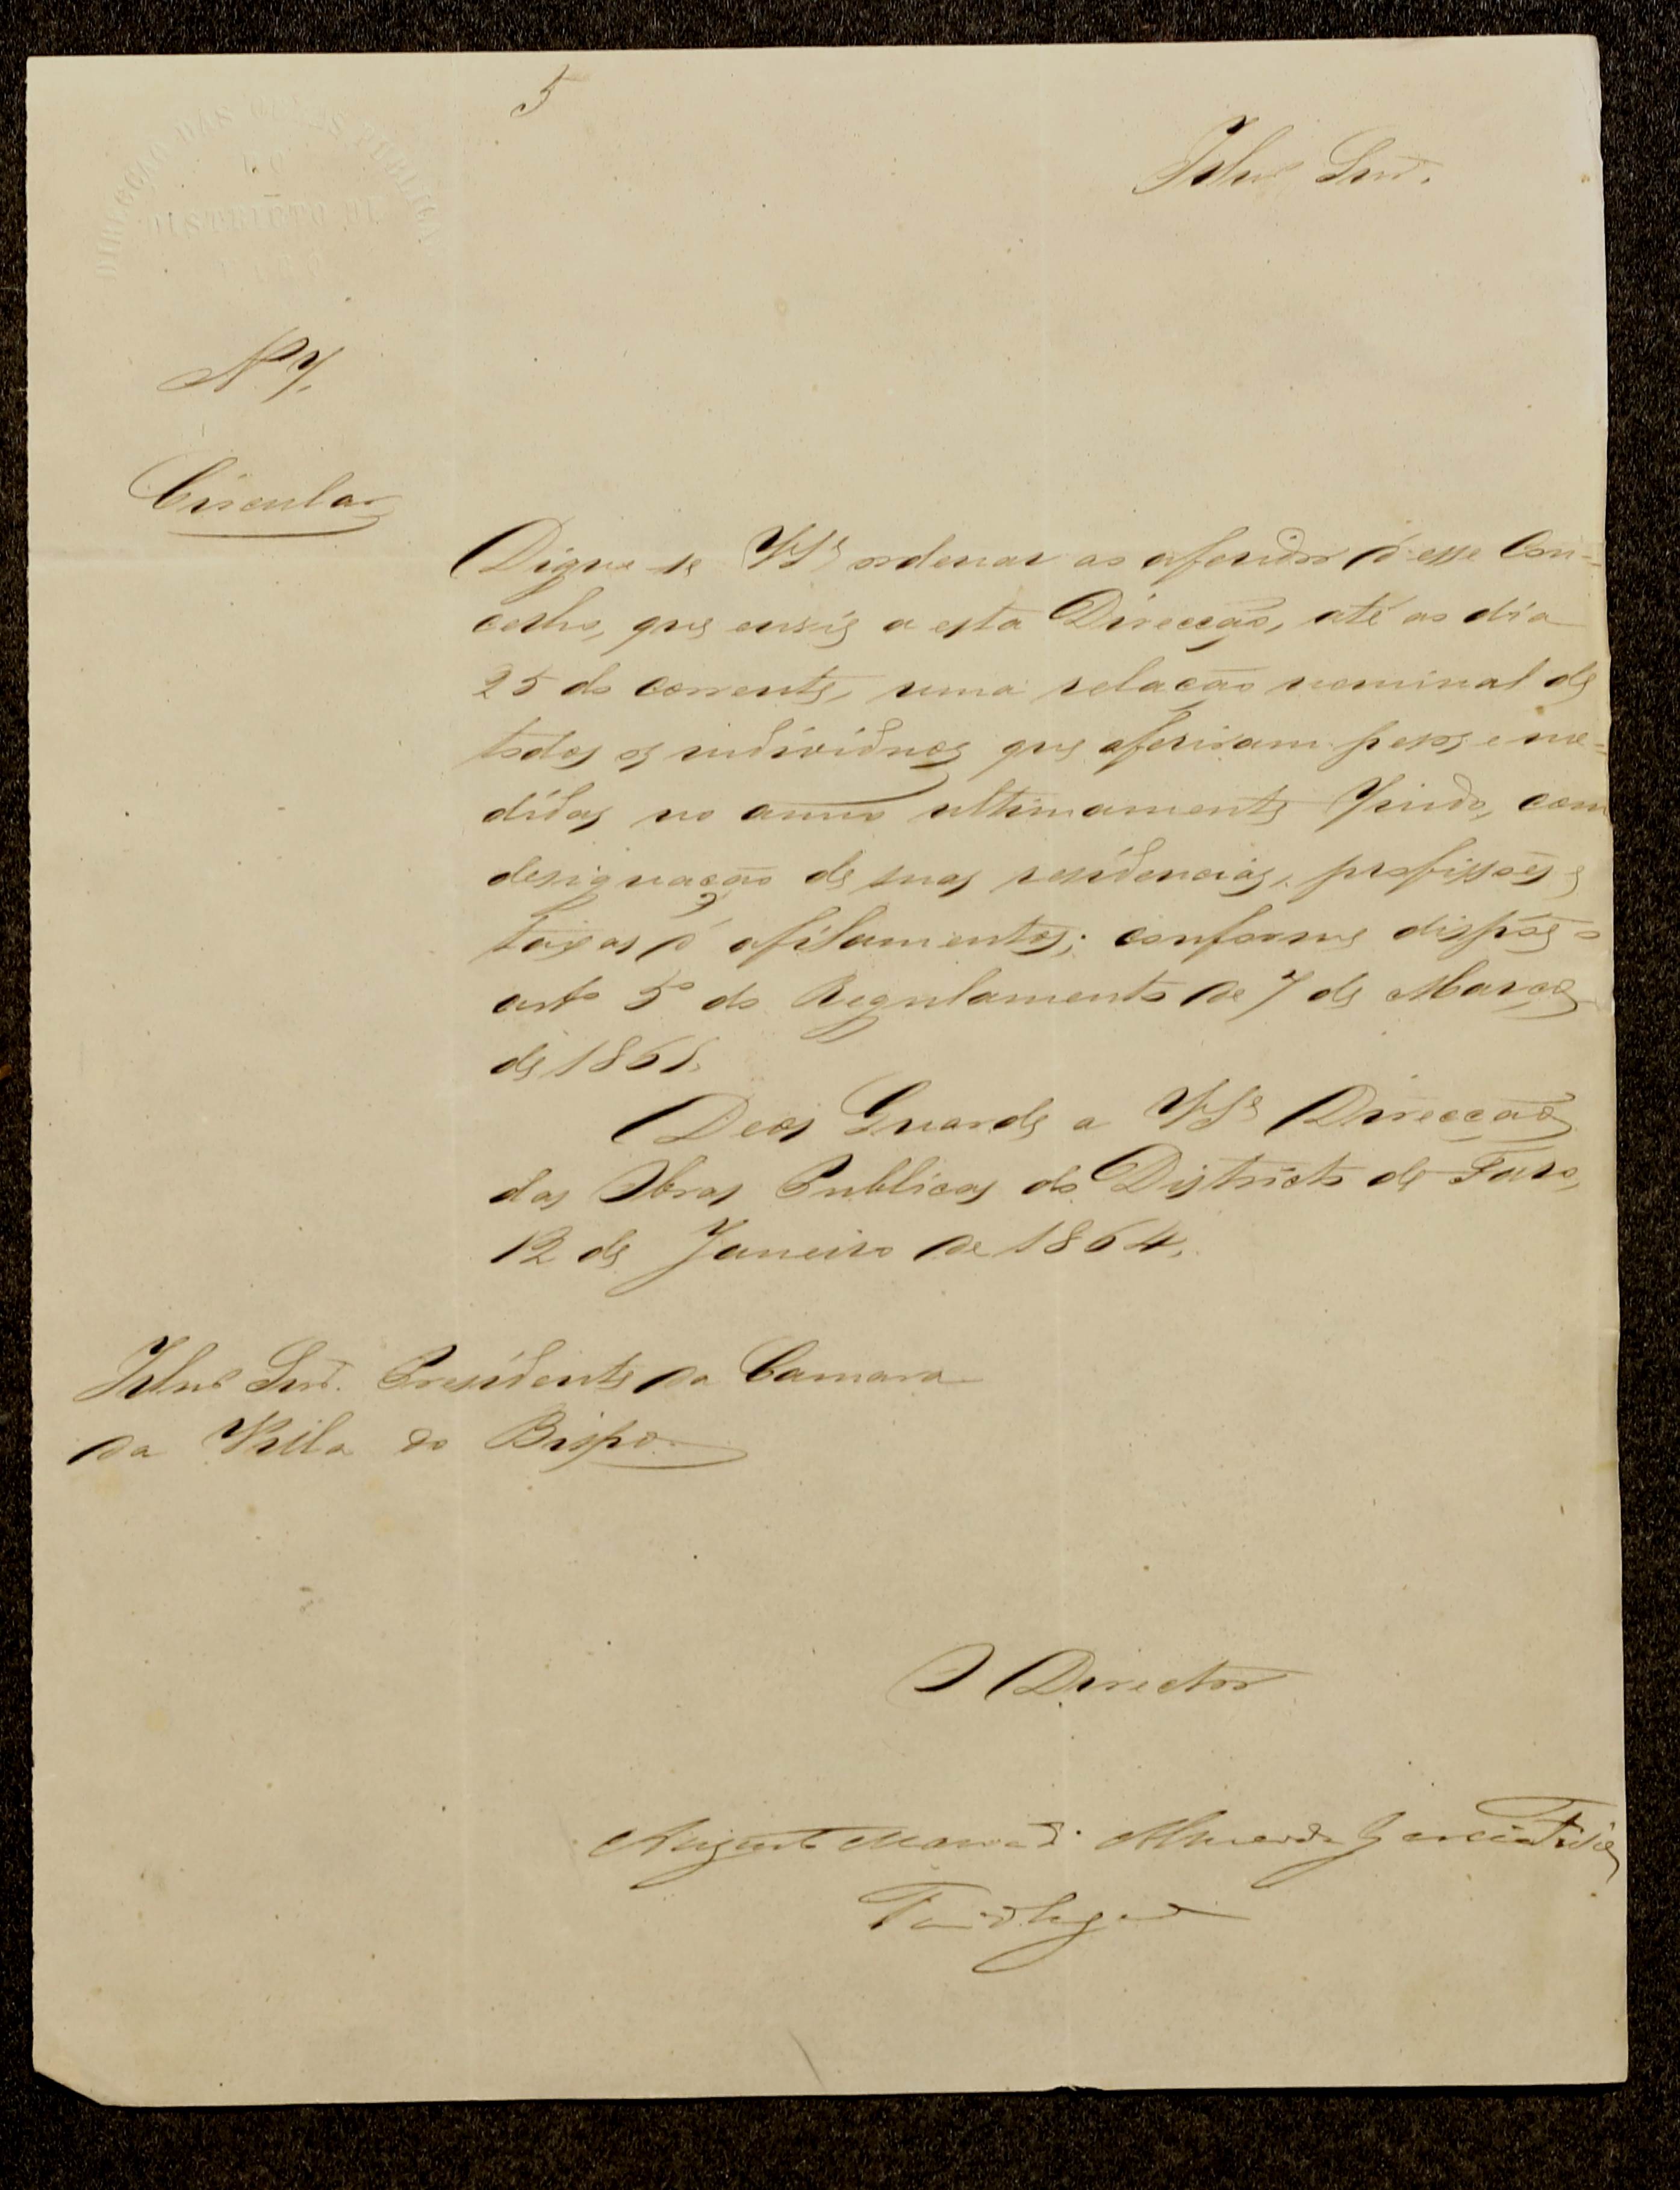 5
DIRECÇÃO DAS OBRAS PUBLICAS
DO
DISTRICTO DE
FARO
Illmo Snr.
N.º 7.
Circular
Digne-se VSª ordenar ao aferidor d'esse Con-
celho, que envie a esta Direcção, até ao dia
25 do corrente, uma relação nominal de
todos os individuos que aferiram pesos e me-
didas no anno ultimamente findo, com
designação de suas residencias, profissões e
taxas d'afilamentos; conforme dispõe o
artº 5º do Regulamento de 7 de Março
de 1861.
Deos Guarde a VSª Direcção
das Obras Publicas do Districto de Faro,
12 de Janeiro de 1864.
Illmo Snr. Presidente da Camara
da Villa do Bispo.
O Director
Augusto Maria d' Almeida Garcia Fidié